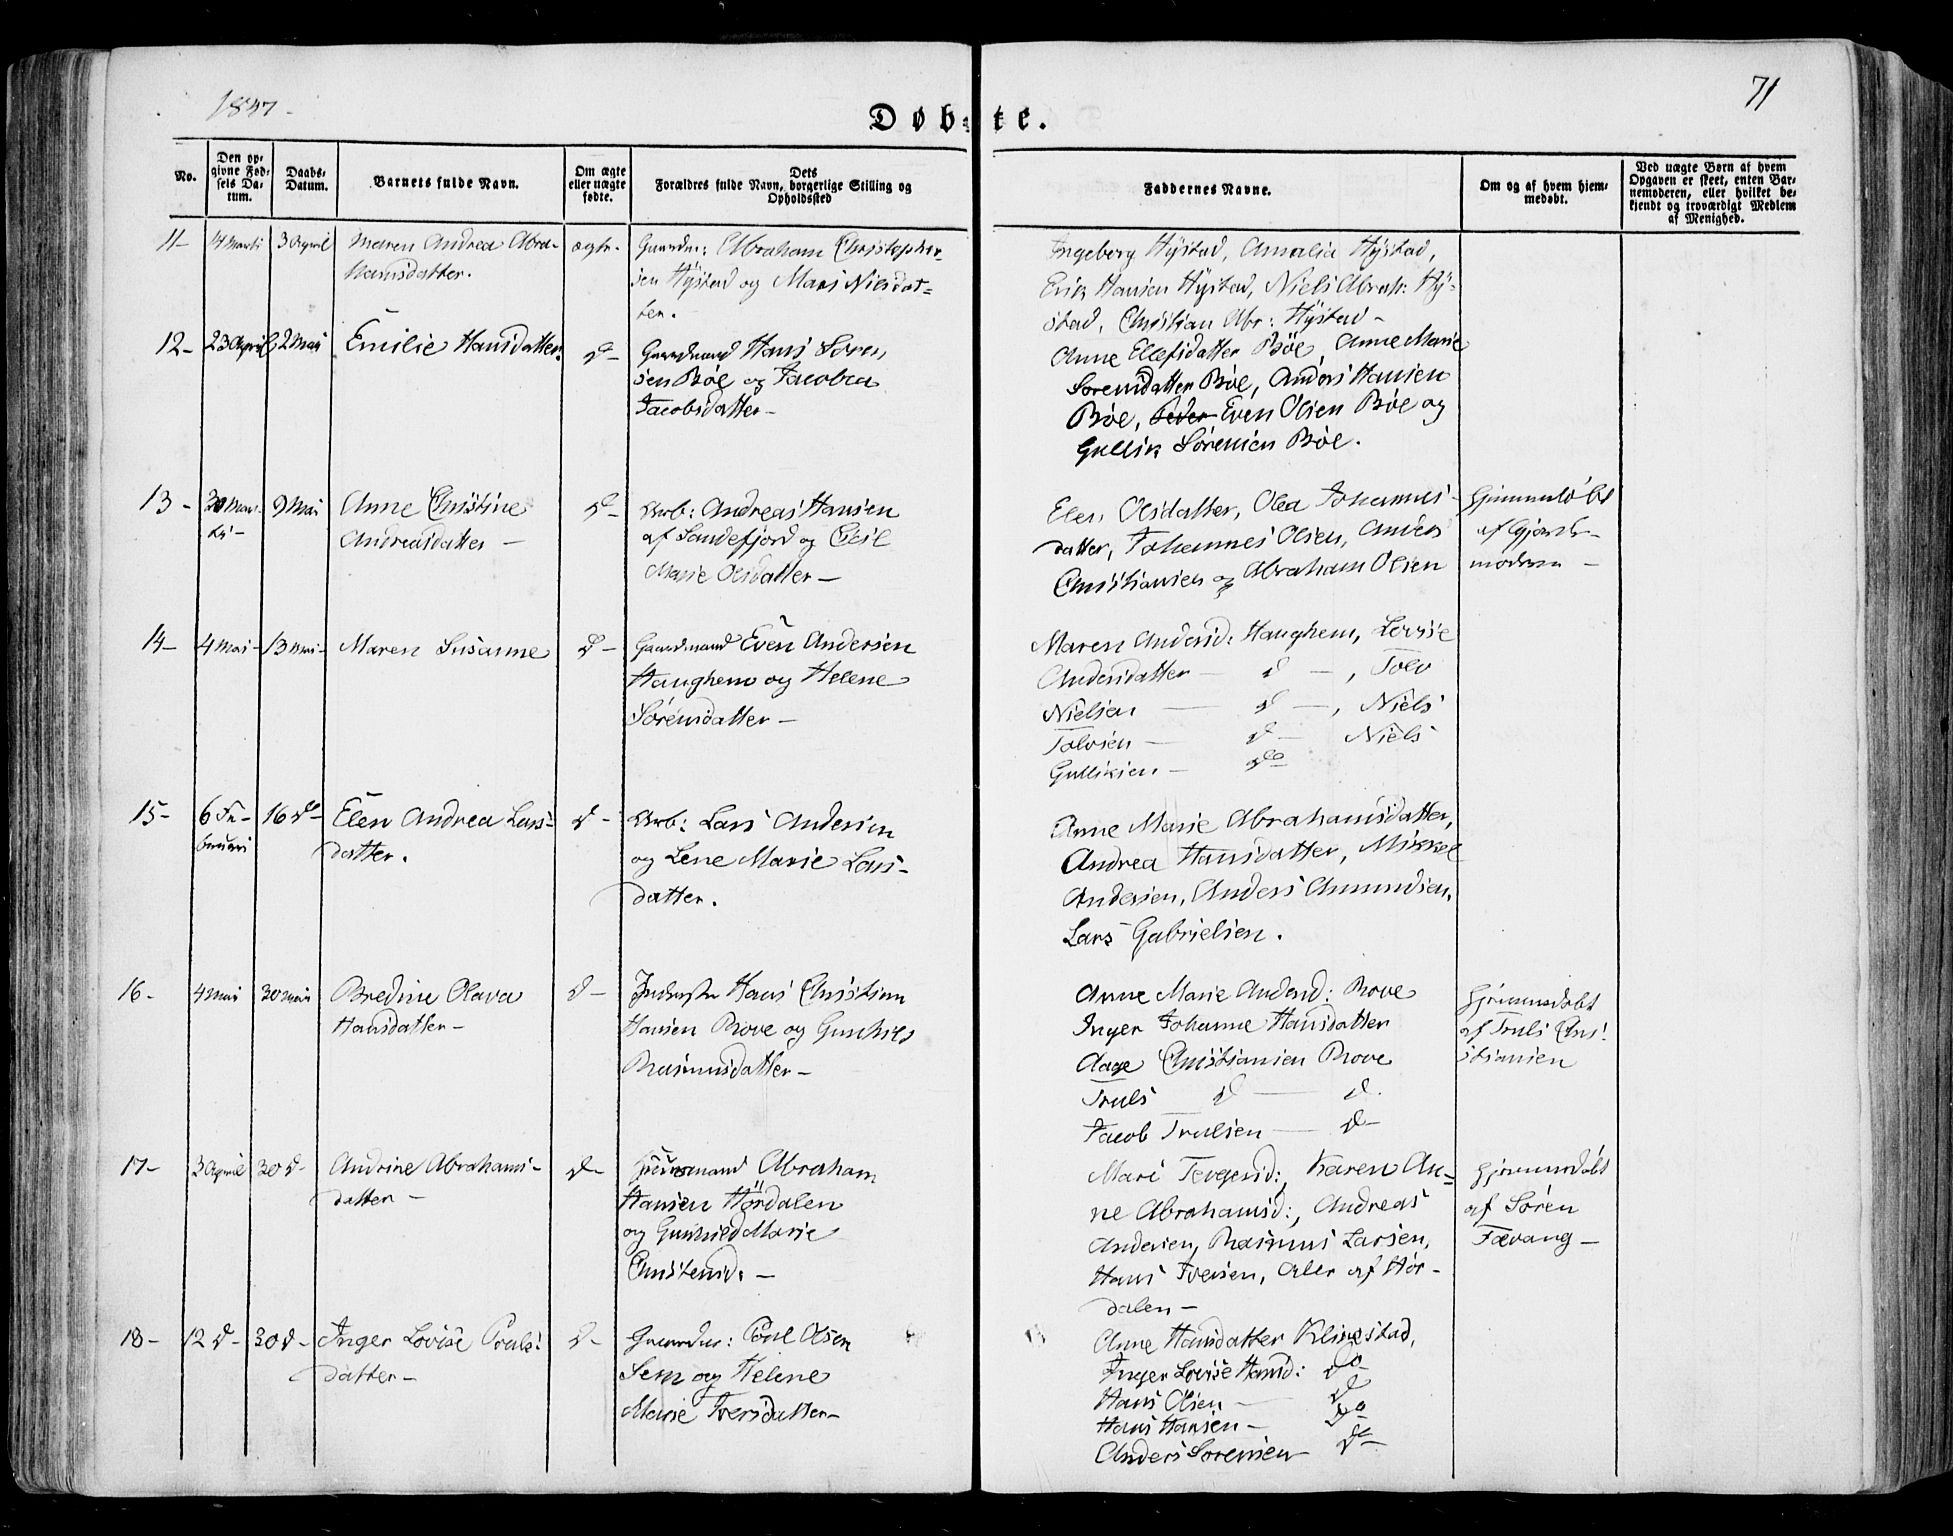 1847 -
71
Døbte.
No.
Den opgivne Fødsels Datum.
Daabs-Datum.
Barnets fulde Navn.
Om ægte eller uægte fødte.
Dets Forældres fulde Navn, borgerlige Stilling og Opholdssted
Faddernes Navne.
Om og af hvem hjemmedøbt.
Ved uægte Børn af hvem Opgaven er skeet, enten Barnemoderen, eller hvilket bekjendt og troværdigt Medlem af Menighed.
11- 14 Marti 3 April Maren Andrea Abra- ægte. Gaardm: Abraham Christopher-
hamsdatter. sen Hÿstad og Mari Nilsdat=
ter.
Ingeborg Hÿstad, Amalia Hÿstad,
Erik Hansen Hÿstad, Niels Abrah: Hÿ-
stad, Christian Abr: Hÿstad -
12- 23 April 2 Mai Emilie Hansdatter. d- Gaardmand Hans Søren
sen Bøe og Jacobea
Jacobsdatter -
Anne Ellefsdatter Bøe, Anne Marie
Sørensdatter Bøe, Anders Hansen
Bøe, Peder Even Olsen Bøe og
Gullik Sørensen Bøe.
13- 30 Mar- 9 Mai Anne Christine d- Arb: Andreas Hansen
ti - Andreasdatter - af Sandefjord og Cecil
Marie Olsdatter -
Elen Olsdatter, Olea Johannes-
datter, Johannes Olsen, Anders
Christiansen og Abraham Olsen
Hjemmedøbt
af Gjorde-
moderen -
14- 4 Mai - 13 Mai - Maren Susanne d- Gaardmand Even Andersen
Haughem og Helene
Sørensdatter -
Maren Andersd: Haughem, Lovise
Andersdatter - d -, Tolv
Nielsen - d -, Niels
Tolvsen - d - Niels
Gulliksen - do
15- 6 Fe- 16 d- Elen Andrea Lars- d- Arb: Lars Andersen
bruari datter. og Lene Marie Lars-
datter.
Anne Marie Abrahamsdatter,
Andrea Hansdatter, Mikkel
Andersen, Anders Amundsen,
Lars Gabrielsen.
16- 4 Mai 30 Mai Bredine Olava d- Inderste Hans Christian
Hansdatter - Hansen Rove og Gunhild
Rasmusdatter -
Anne Marie Andersd: Rove
Inger Johanne Hansdatter
Aage Christiansen Rove
Truls d - d.
Jacob Trulsen - d-
Hjemmedøbt
af Truls Chri-
stiansen
17- 3 April 30 d- Andrine Abrahams- d- Huusmand Abraham
datter - Hansen Hørdalen
og Gunhild Marie
Christensd. -
Mari Tergersd:, Karen An=
ne Abrahamsd:, Andreas
Andersen, Rasmus Larsen,
Hans Iversen, Alle af Hør-
dalen -
Hjemmedøbt
af Søren
Fævang -
18- 12 d- 30 d- Inger Lovise Pouls- d- Gaardm: Poul Olsen
datter - Sem og Helene
Marie Iversdatter -
Anne Hansdatter Klinestad,
Inger Lovise Hansd: do
Hans Olsen - do
Hans Hansen - do
Anders Sørensen do -